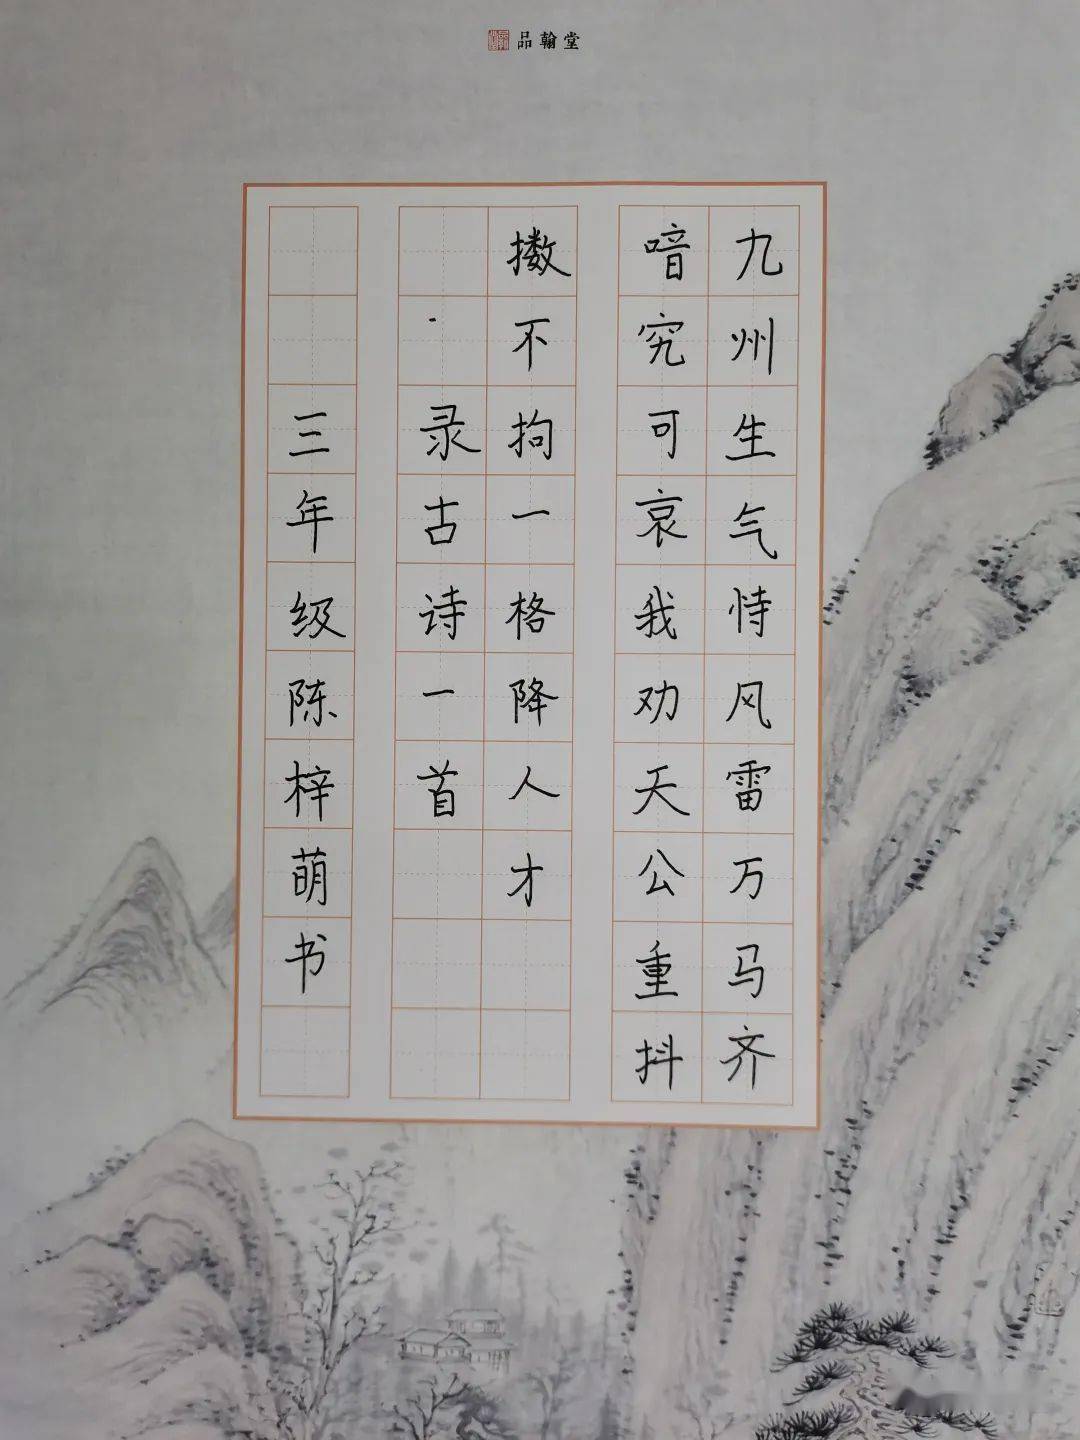 品翰堂
九州生气恃风雷万马齐
喑究可哀我劝天公重抖
擞不拘一格降人才
录古诗一首
三年级陈梓萌书